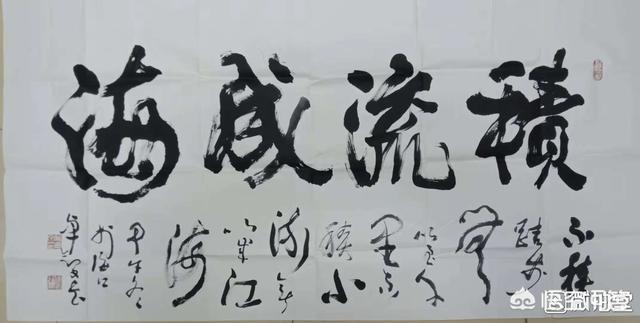 積流成海
不積
跬步
無
以至千
里不
積小
流無
以成江
海
甲午冬
於海口